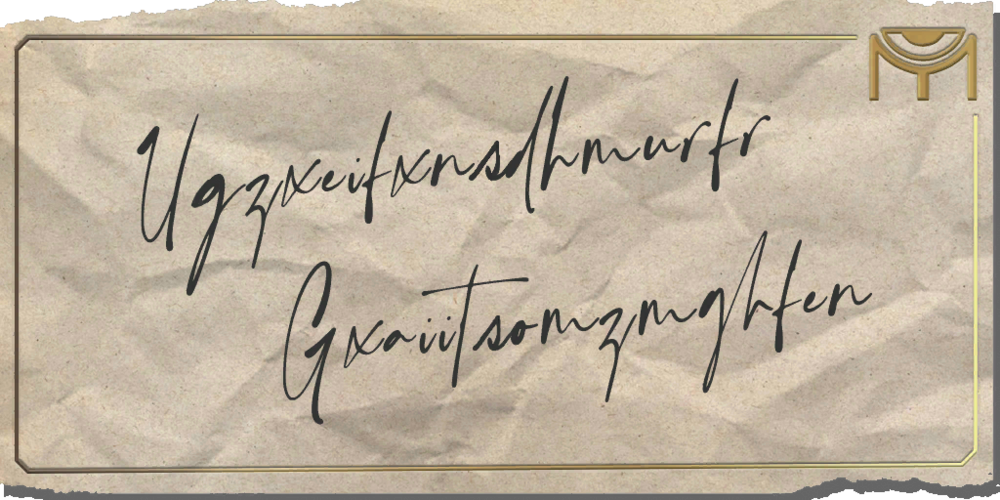 Ugzxeifxnsdhmurfr
Gxaiitsomzmghfen